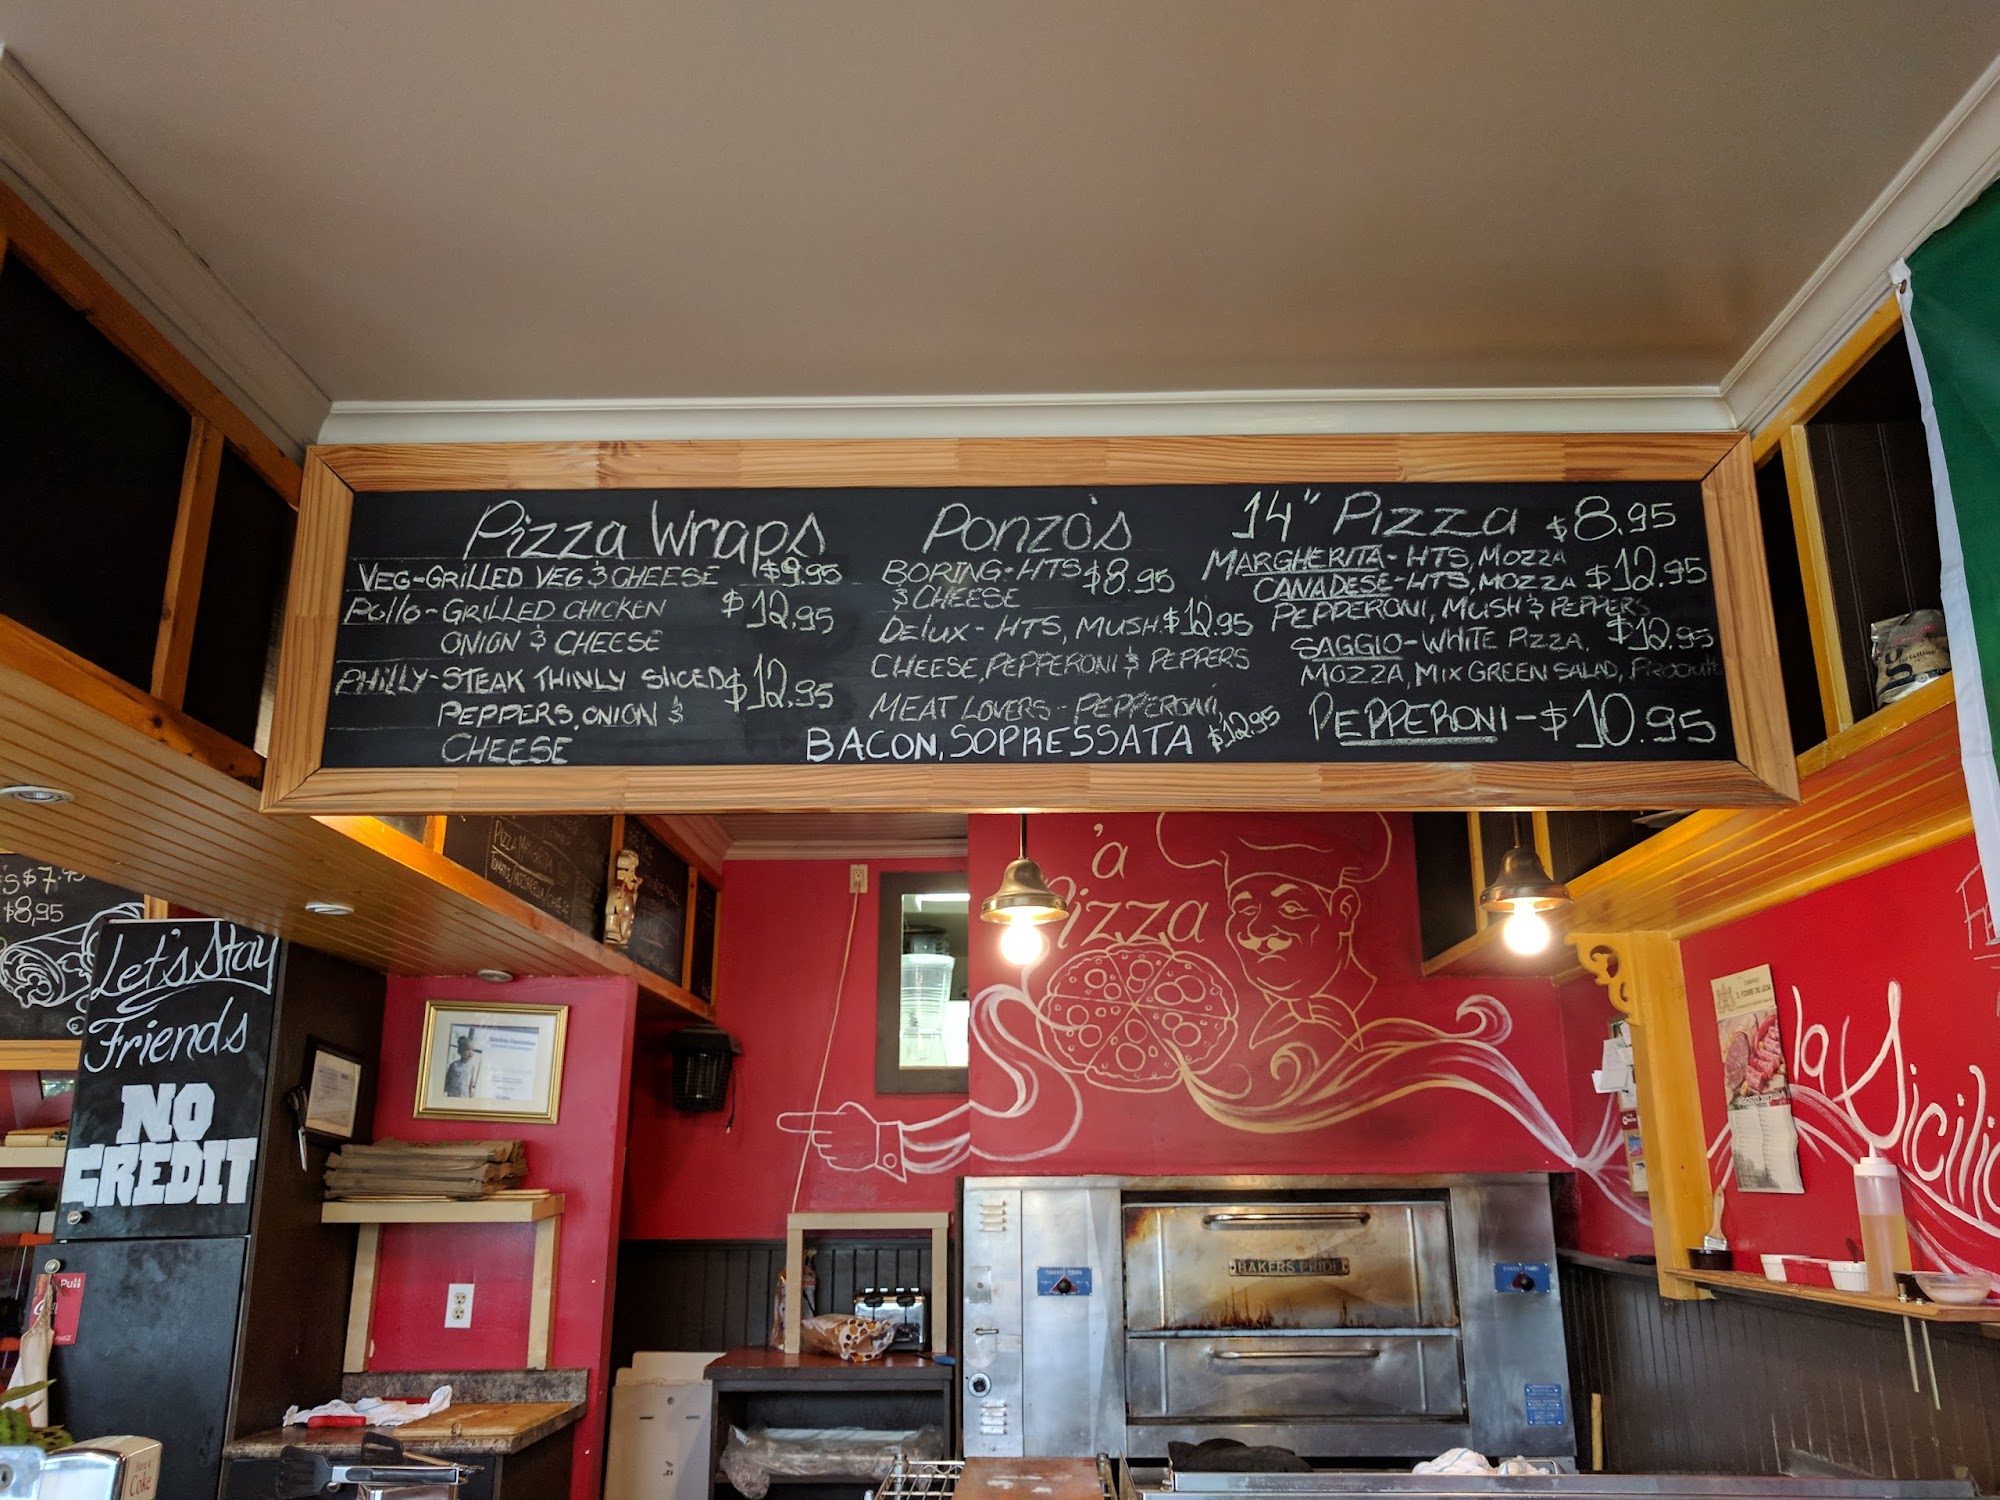 Pizza Wraps
VEG-GRILLED VEG & CHEESE $9.95
Pollo-GRILLED CHICKEN $12.95
ONION & CHEESE
PHILLY-STEAK THINLY SLICED $12.95
PEPPERS, ONION &
CHEESE
Ponzo's
BORING-HTS $8.95
& CHEESE
DELUX- HTS, MUSH $12.95
CHEESE, PEPPERONI & PEPPERS
MEAT LOVERS- PEPPERONI,
BACON, SOPRESSATA $12.95
14" PIZZa $8.95
MARGHERITA- HTS, MOZZA
CANADESE-HTS, MOZZA $12.95
PEPPERONI, MUSH & PEPPERS
SAGGIO-WHITE PIZZA, $12.95
MOZZA, MIX GREEN SALAD,
PEPPERONI-$10.95
'a
Pizza
$8,95
Let's Stay
Friends
NO
CREDIT
Pull
Coke
BAKERS PRIDE
la Sicilia